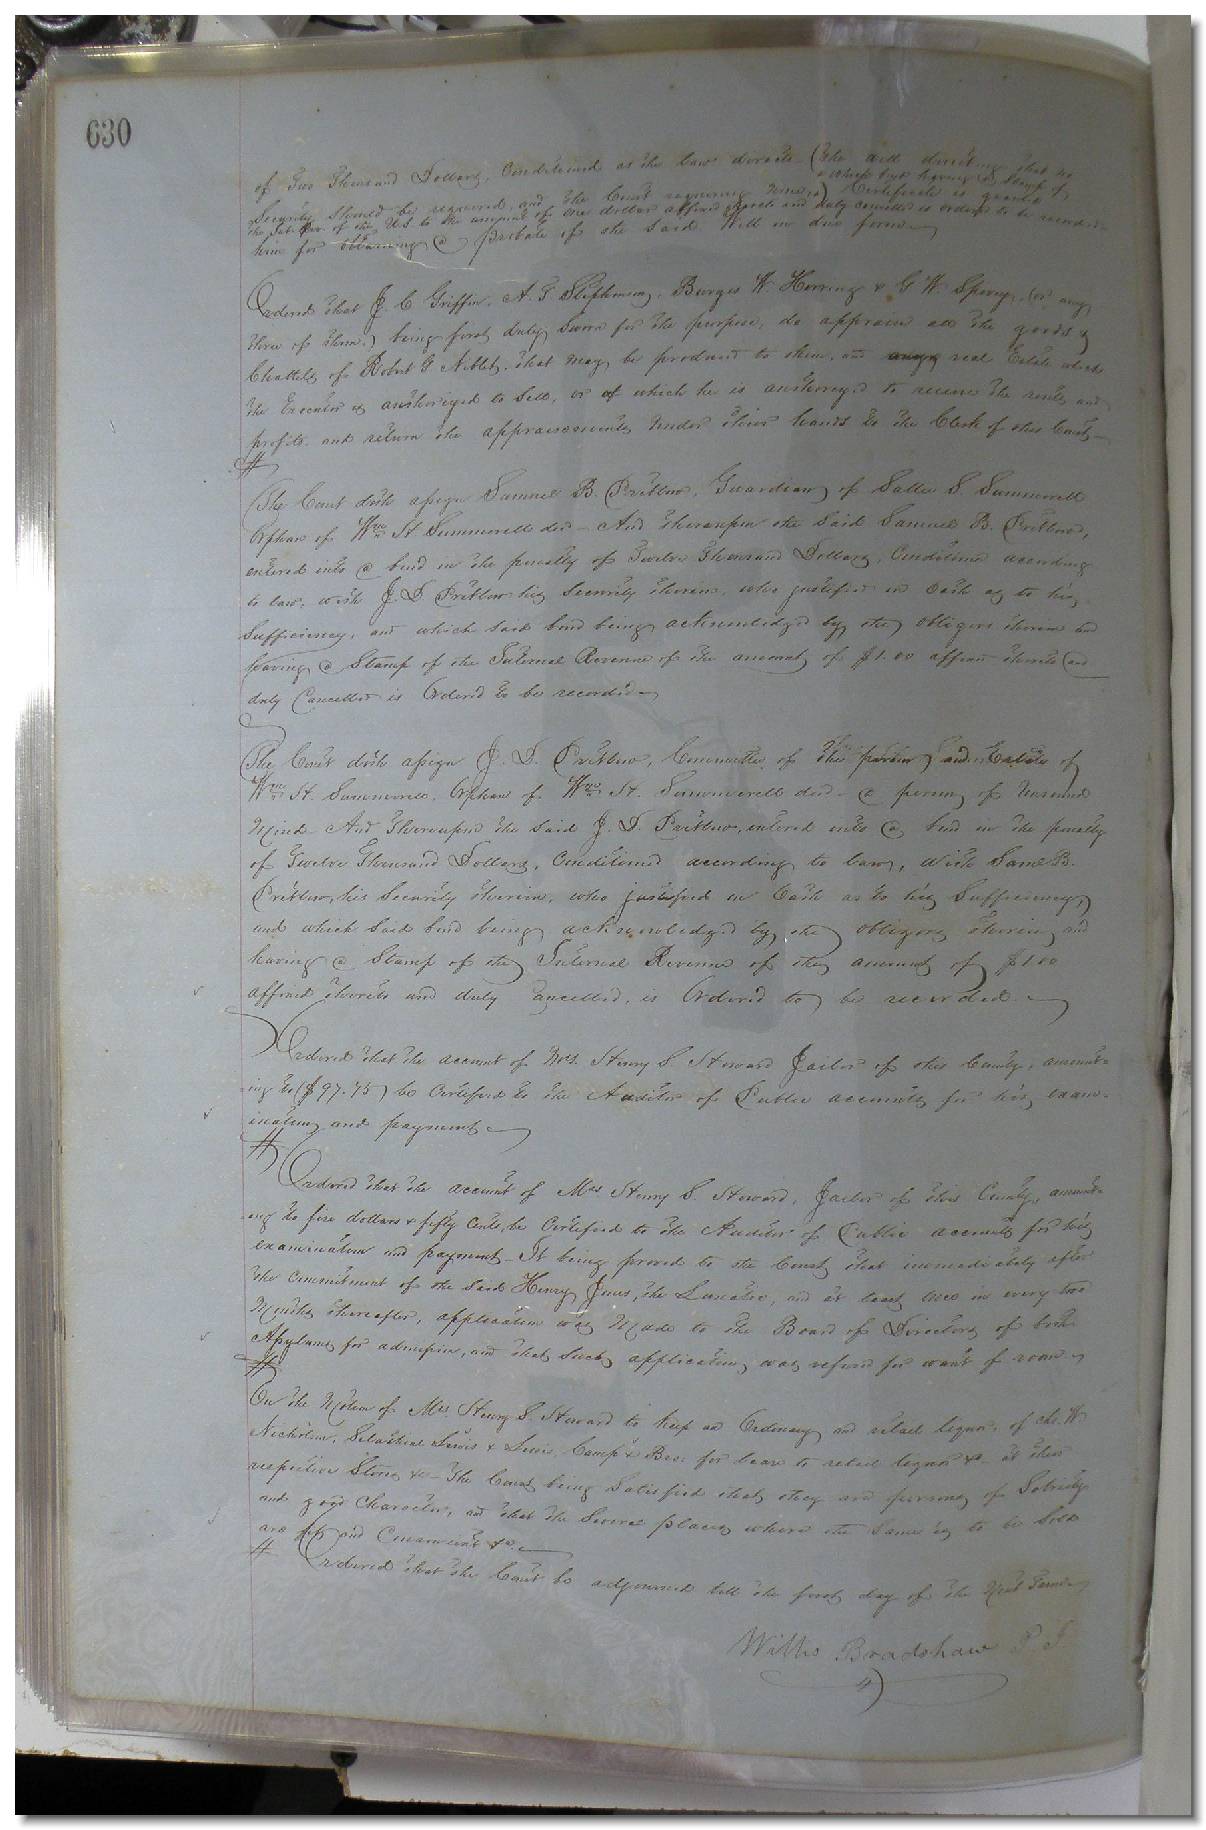 630
of Two Thousand Dollars, Conditioned as the law directs (the will directing that no
Security should be required, and the Court requiring none,) Certificate is granted
which bond having a Stamp of
the Int. Rev of the U.S. to the amount of one dollar affixed thereto and duly cancelled is ordered to be recorded
him for obtaining a probate of the said Will in due form
Ordered that J. C. Griffin, A. T. Stephenson, Burges W. Herring & G. W. Spivey, (or any
three of them,) being first duly sworn for the purpose, do appraise all the goods &
Chattels of Robert G. Niblet, that may be produced to them, and any real Estate which
the Executor is authorized to sell, or of which he is authorized to receive the rents and
profits. and return the appraisements under their hands to the Clerk of this Court
The Court doth assign Samuel B. Pretlow, Guardian of Sallie S. Summerell
Orphan of Wm H Summerell decd - And thereupon the Said Samuel B. Pretlow,
entered into a bond in the penalty of Twelve Thousand Dollars, Conditioned according
to law, with J. D Pretlow his Security therein, who justified on Oath as to his
Sufficiency, and which said bond being acknowledged by the obligors therein and
having a Stamp of the Internal Revenue of the amount of $1.00 affixed thereto and
duly Cancelled is Ordered to be recorded
The Court doth assign J. D. Pretlow, Committee of the person and Estate of
Wm H. Summerell, Orphan of Wm H. Summerell decd - a person of Unsound
Mind. And thereupon the said J. D. Pretlow, entered into a bond in the penalty
of Twelve Thousand Dollars, Conditioned according to law, with Saml B.
Pretlow, his Security therein, who justified on Oath as to his Sufficiency,
and which said bond being acknowledged by the obligors therein and
having a Stamp of the Internal Revenue of the amount of $1.00
affixed thereto and duly Cancelled, is Ordered to be recorded
Ordered that the account of Mrs. Henry S. Howard Jailor of this County, amount-
ing to ($97.75) be Certified to the Auditor of Public accounts for his exam-
ination and payment
Ordered that the account of Mrs Henry S. Howard, Jailor of this County, amount-
ing to five dollars & fifty Cents, be Certified to the Auditor of Public accounts for his
examination and payment - It being proved to the Court that immediately after
the Commitment of the said Henry Jones, the Lunatic, and at least once in every two
Months thereafter, application was Made to the Board of Directors of both
Asylums for admission, and that such application was refused for want of room
On the Motion of Mrs Henry S. Howard to keep an Ordinary and retail liquor, of W.
Nicholson, Lewis & Lewis, Camp & Bro: for leave to retail liquor &c - at their
respective Stores &c - The Court being Satisfied that they are persons of Sobriety
and good Character, and that the Several places where the Same is to be Sold
are fit and Convenient &c.
Ordered that the Court be adjourned till the first day of the Next Term
Willis Bradshaw P. J.